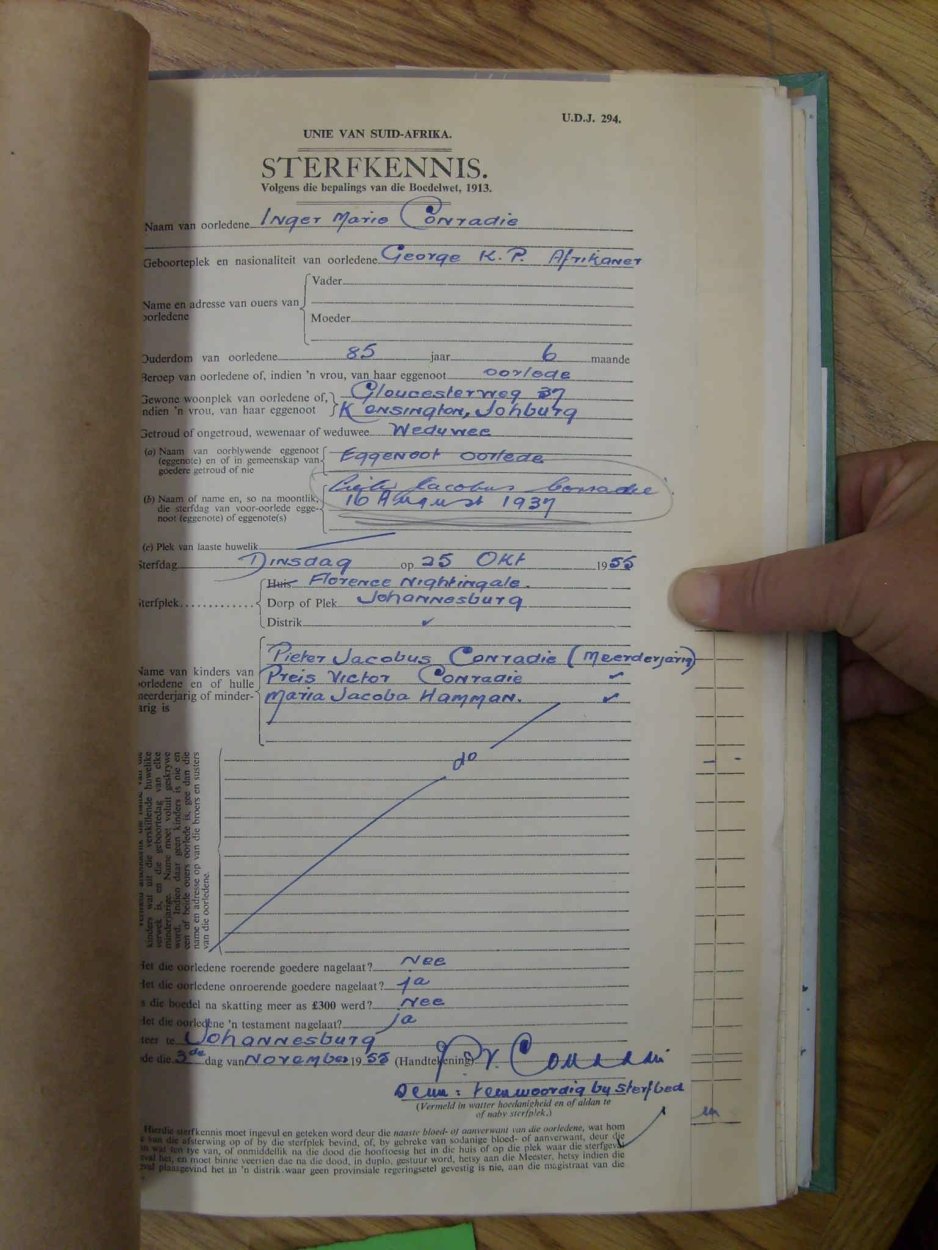 U.D.J. 294.
UNIE VAN SUID-AFRIKA.
STERFKENNIS.
Volgens die bepalings van die Boedelwet, 1913.
Naam van oorledene Inger Marie Conradie
Geboorteplek en nasionaliteit van oorledene George K.P. Afrikaner
Name en adresse van ouers van oorledene
Vader
Moeder
Ouderdom van oorledene 85 jaar 6 maande
Beroep van oorledene of, indien 'n vrou, van haar eggenoot oorlede
Gewone woonplek van oorledene of, Gloucesterweg 37
indien 'n vrou, van haar eggenoot Kensington, Johburg
Getroud of ongetroud, wewenaar of weduwee Weduwee
(a) Naam van oorblywende eggenoot
(eggenote) en of in gemeenskap van Eggenoot oorlede
goedere getroud of nie
Jacobus Conradie
(b) Naam of name en, so na moontlik, 16 August 1937
die sterfdag van voor-oorlede egge-
noot (eggenote) of eggenote(s)
(c) Plek van laaste huwelik
Sterfdag Dinsdag op 25 Okt 1955
Huis Florence Nightingale.
Sterfplek Dorp of Plek Johannesburg
Distrik ✓
Pieter Jacobus Conradie (Meerderjarig)
Name van kinders van Preis Victor Conradie ✓
oorledene en of hulle
meerderjarig of minder- Maria Jacoba Hamman. ✓
jarig is
do
kinders wat uit die verskillende huwelike
verwek is, en die geboortedag van elke
minderjarige. Name moet voluit geskrywe
word. Indien daar geen kinders is nie en
een of beide ouers oorlede is, gee dan die
name en adresse op van die broers en susters
van die oorledene.
Het die oorledene roerende goedere nagelaat? Nee
Het die oorledene onroerende goedere nagelaat? Ja
Is die boedel na skatting meer as £300 werd? Nee
Het die oorledene 'n testament nagelaat? Ja
teer te Johannesburg
de die 3de dag van November 1955 (Handtekening) P. V. Conradie
Seun: teenwoordig by sterfbed
(Vermeld in watter hoedanigheid en of aldan te
of naby sterfplek.)
Hierdie sterfkennis moet ingevul en geteken word deur die naaste bloed- of aanverwant van die oorledene, wat hom
van die afsterwing op of by die sterfplek bevind, of, by gebreke van sodanige bloed- of aanverwant, deur die
of onmiddellik na die dood die hooftoesig het in die huis of op die plek waar die sterfgeval
het, en moet binne veertien dae na die dood, in duplo, gestuur word, hetsy aan die Meester, hetsy indien die
plaasgevind het in 'n distrik waar geen provinsiale regeringsetel gevestig is nie, aan die magistraat van die